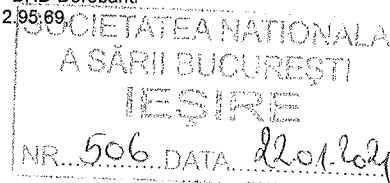 2,95,69,
SOCIETATEA NAȚIONALĂ
A SĂRII BUCUREȘTI
IEȘIRE
NR...506...DATA...22.01.2021